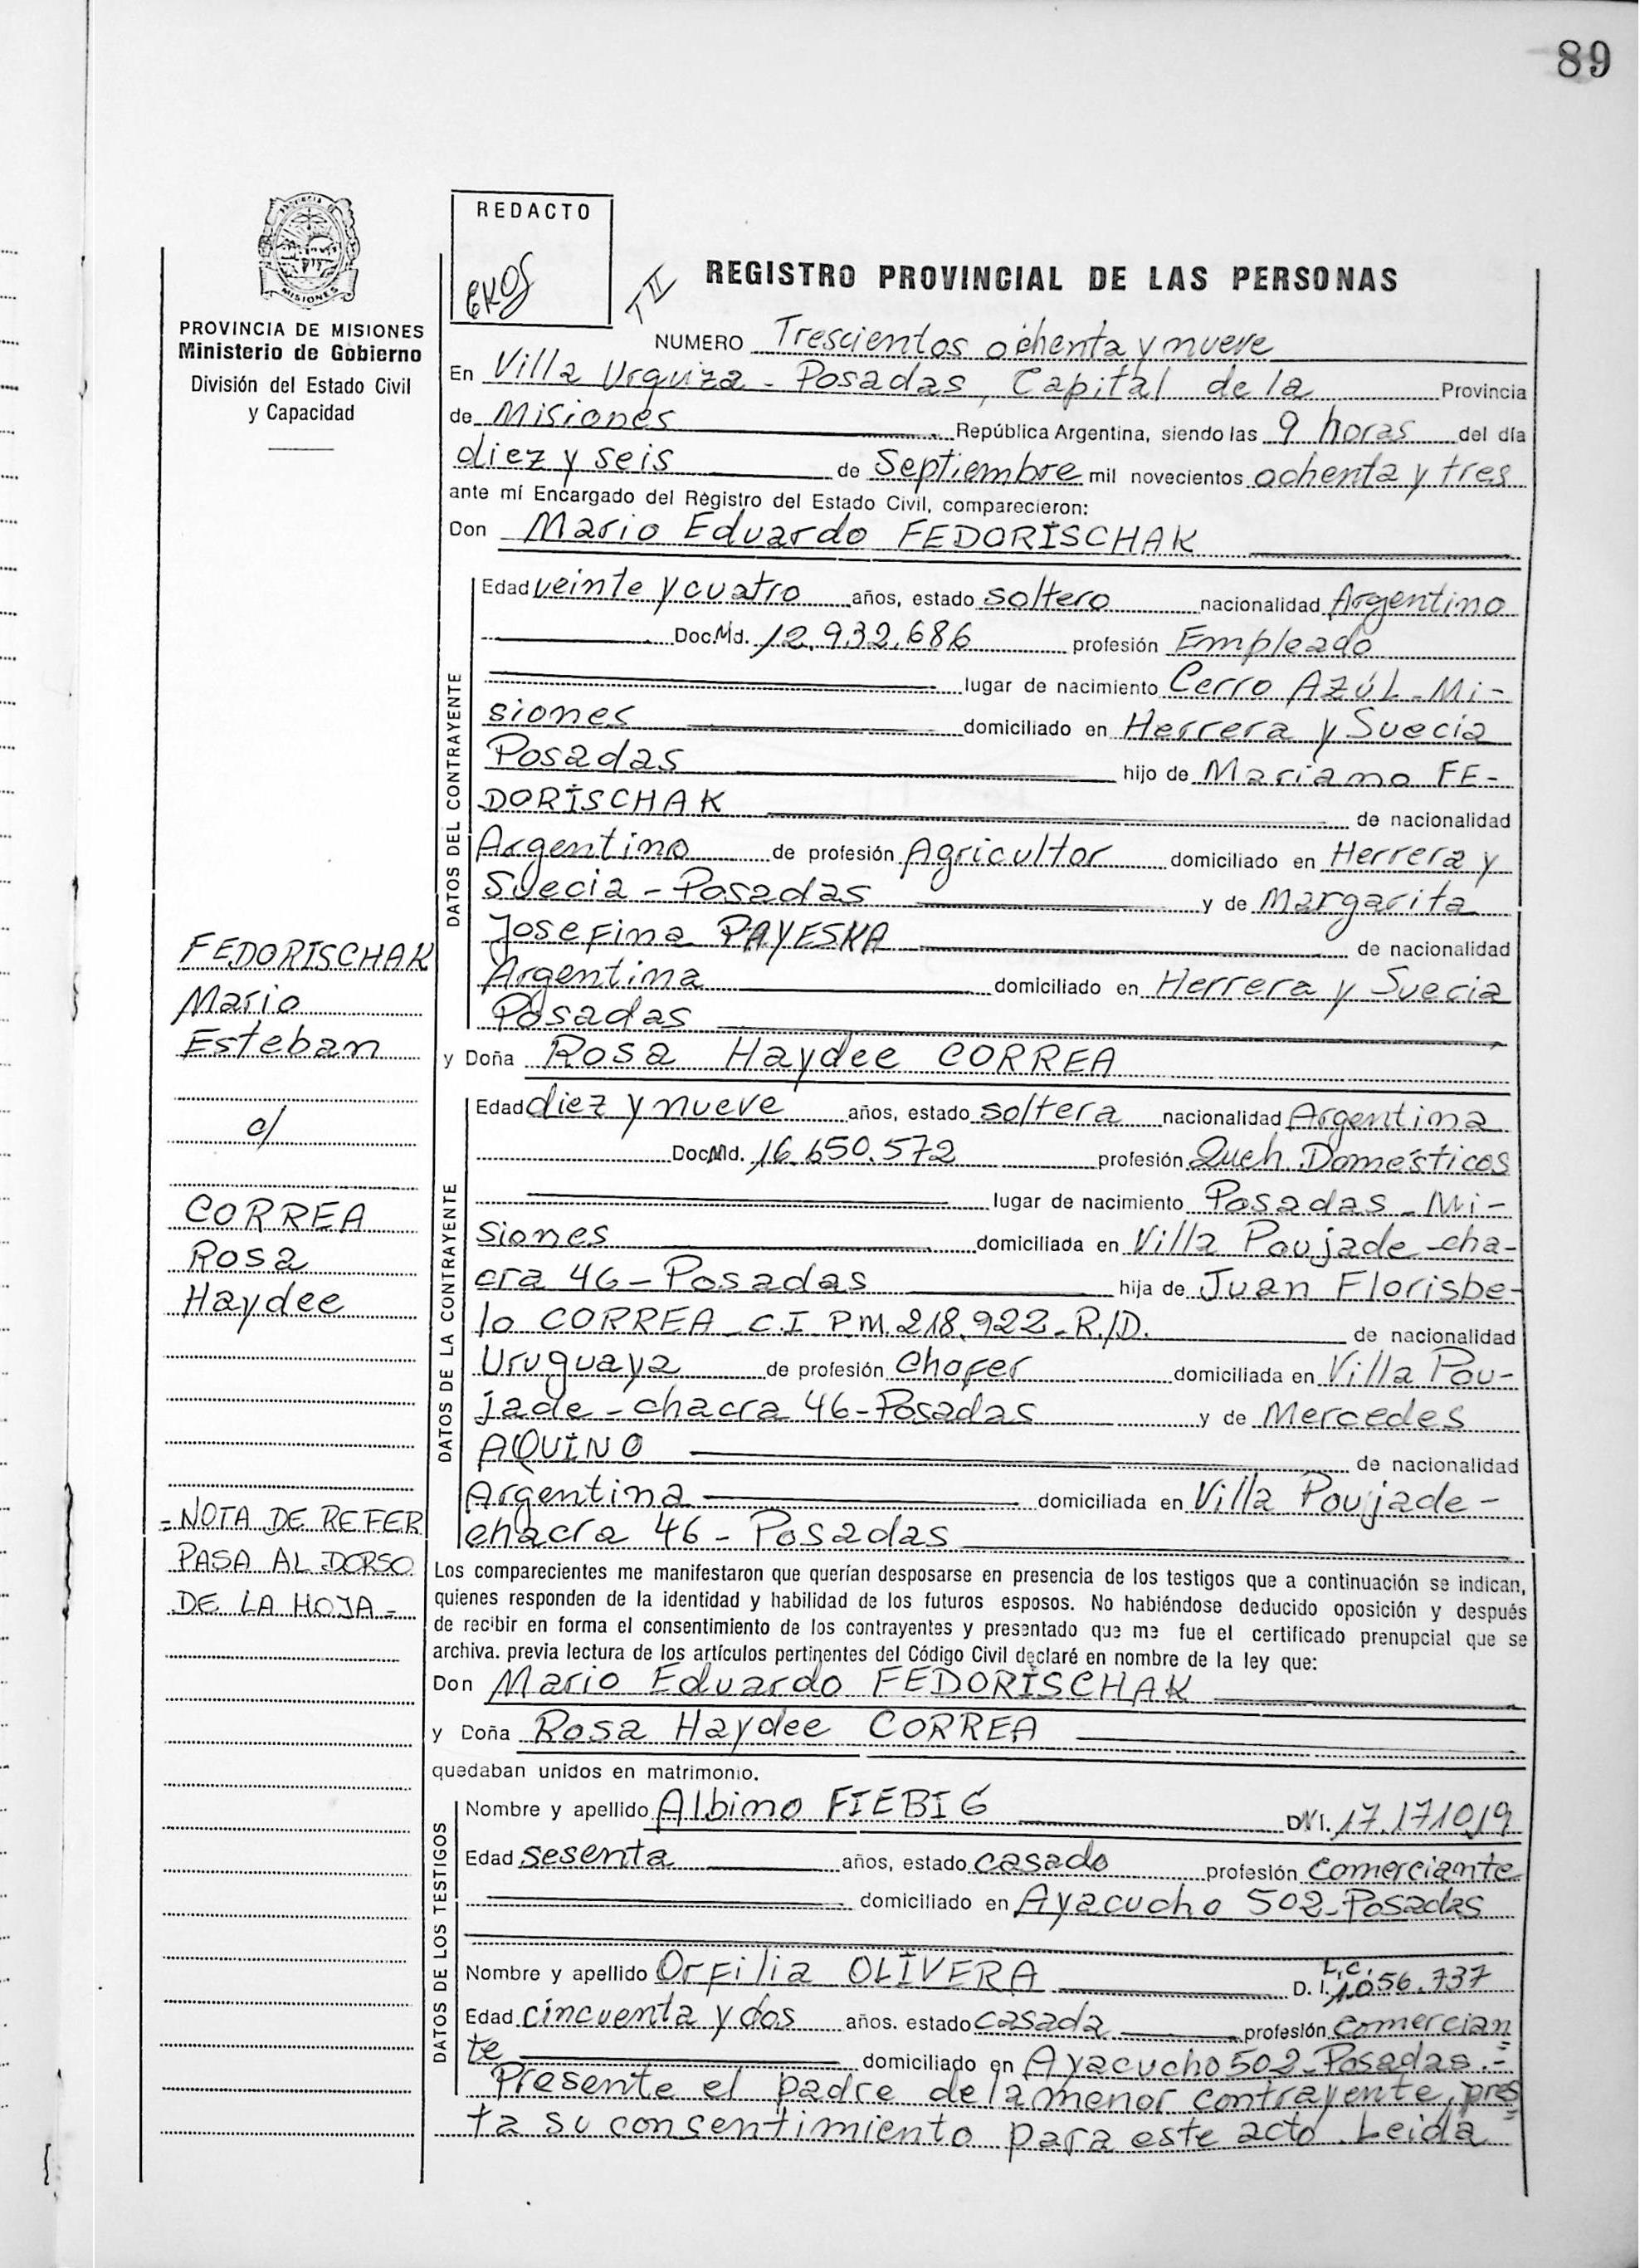 89
PROVINCIA DE MISIONES
Ministerio de Gobierno
División del Estado Civil
y Capacidad
REDACTO
REGISTRO PROVINCIAL DE LAS PERSONAS
NUMERO Trescientos ochenta y nueve
En Villa Urquiza - Posadas, Capital de la Provincia
de Misiones República Argentina, siendo las 9 horas del día
diez y seis de Septiembre mil novecientos ochenta y tres
ante mí Encargado del Registro del Estado Civil, comparecieron:
Don Mario Eduardo FEDORISCHAK
DATOS DEL CONTRAYENTE
Edad veinte y cuatro años, estado soltero nacionalidad Argentino
Doc.Nd. 12.932.686 profesión Empleado
lugar de nacimiento Cerro AZÚL - Mi-
siones domiciliado en Herrera y Suecia
Posadas hijo de Mariano FE-
DORISCHAK de nacionalidad
Argentino de profesión Agricultor domiciliado en Herrera y
Suecia - Posadas y de Margarita
Josefina PAYESKA de nacionalidad
Argentina domiciliado en Herrera y Suecia
Posadas
y Doña Rosa Haydee CORREA
DATOS DE LA CONTRAYENTE
Edad diez y nueve años, estado soltera nacionalidad Argentina
Doc.Nd. 16.650.572 profesión Queh. Domésticos
lugar de nacimiento Posadas - Mi-
siones domiciliada en Villa Poujade - cha-
cra 46 - Posadas hija de Juan Florisbe-
lo CORREA - C.I. P.M. 218.922 - R./D. de nacionalidad
Uruguaya de profesión Chofer domiciliada en Villa Pou-
jade - chacra 46 - Posadas y de Mercedes
AQUINO de nacionalidad
Argentina domiciliada en Villa Poujade -
chacra 46 - Posadas
FEDORISCHAK
Mario
Esteban
c/
CORREA
Rosa
Haydee
= NOTA DE REFER
PASA AL DORSO
DE LA HOJA =
Los comparecientes me manifestaron que querían desposarse en presencia de los testigos que a continuación se indican,
quienes responden de la identidad y habilidad de los futuros esposos. No habiéndose deducido oposición y después
de recibir en forma el consentimiento de los contrayentes y presentado que me fue el certificado prenupcial que se
archiva. previa lectura de los artículos pertinentes del Código Civil declaré en nombre de la ley que:
Don Mario Eduardo FEDORISCHAK
y Doña Rosa Haydee CORREA
quedaban unidos en matrimonio.
DATOS DE LOS TESTIGOS
Nombre y apellido Albino FIEBIG DNI. 17.171019
Edad sesenta años, estado casado profesión comerciante
domiciliado en Ayacucho 502 - Posadas
Nombre y apellido Orfilia OLIVERA L.C. D. I. 1.056.737
Edad cincuenta y dos años. estado casada profesión comercian
te domiciliado en Ayacucho 502 - Posadas.=
Presente el padre de la menor contrayente, pres
ta su consentimiento para este acto. Leida